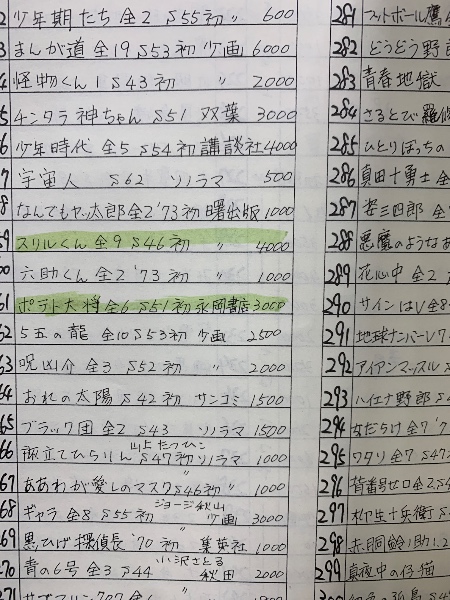 2 少年期たち 全2 S55初 〃 600
3 まんが道 全19 S53初 少画 6000
4 怪物くん 1 S43初 〃 2000
5 チンタラ神ちゃん S51 双葉 3000
6 少年時代 全5 S54初 講談社 4000
7 宇宙人 S62 ソノラマ 500
8 なんでもヤッ太郎 全2 '73初 曙出版 1000
59 スリルくん 全9 S46初 〃 4000
60 六助くん 全2 '73初 〃 1000
61 ポテト大将 全6 S51初 永岡書店 3000
62 5五の龍 全10 S53初 少画 2500
63 呪凶介 全3 S52初 〃 2000
64 おれの太陽 S42初 サンコミ 1500
65 ブラック団 全2 S43 ソノラマ 1500
山上たつひこ
66 旅立てひらりん S47初 ソノラマ 1000
67 ああわが愛しのマスク S46初 〃 1000
ジョージ秋山
68 ギャラ 全8 S55初 少画 3000
69 黒ひげ探偵長 '70初 集英社 1000
小沢さとる
70 青の6号 全3 S44 秋田 2000
71 サブマリン707
281 フットボール鷹
282 どうどう野郎
283 青春地獄
284 さるとび
285 ひとりぼっちの
286 真田十勇士 全
287 姿三四郎 全
288 悪魔のようなあ
289 花心中 全2
290 サインはV 全8
291 地球ナンバーV7
292 アイアンマッスル S
293 ハイエナ野郎 S4
294 女だらけ 全7 '7
295 ワタリ 全7 S42
296 背番号ゼロ 全2 S4
297 柳生十兵衛 S
298 赤胴鈴ノ助 1.2
299 真夜中の仔猫